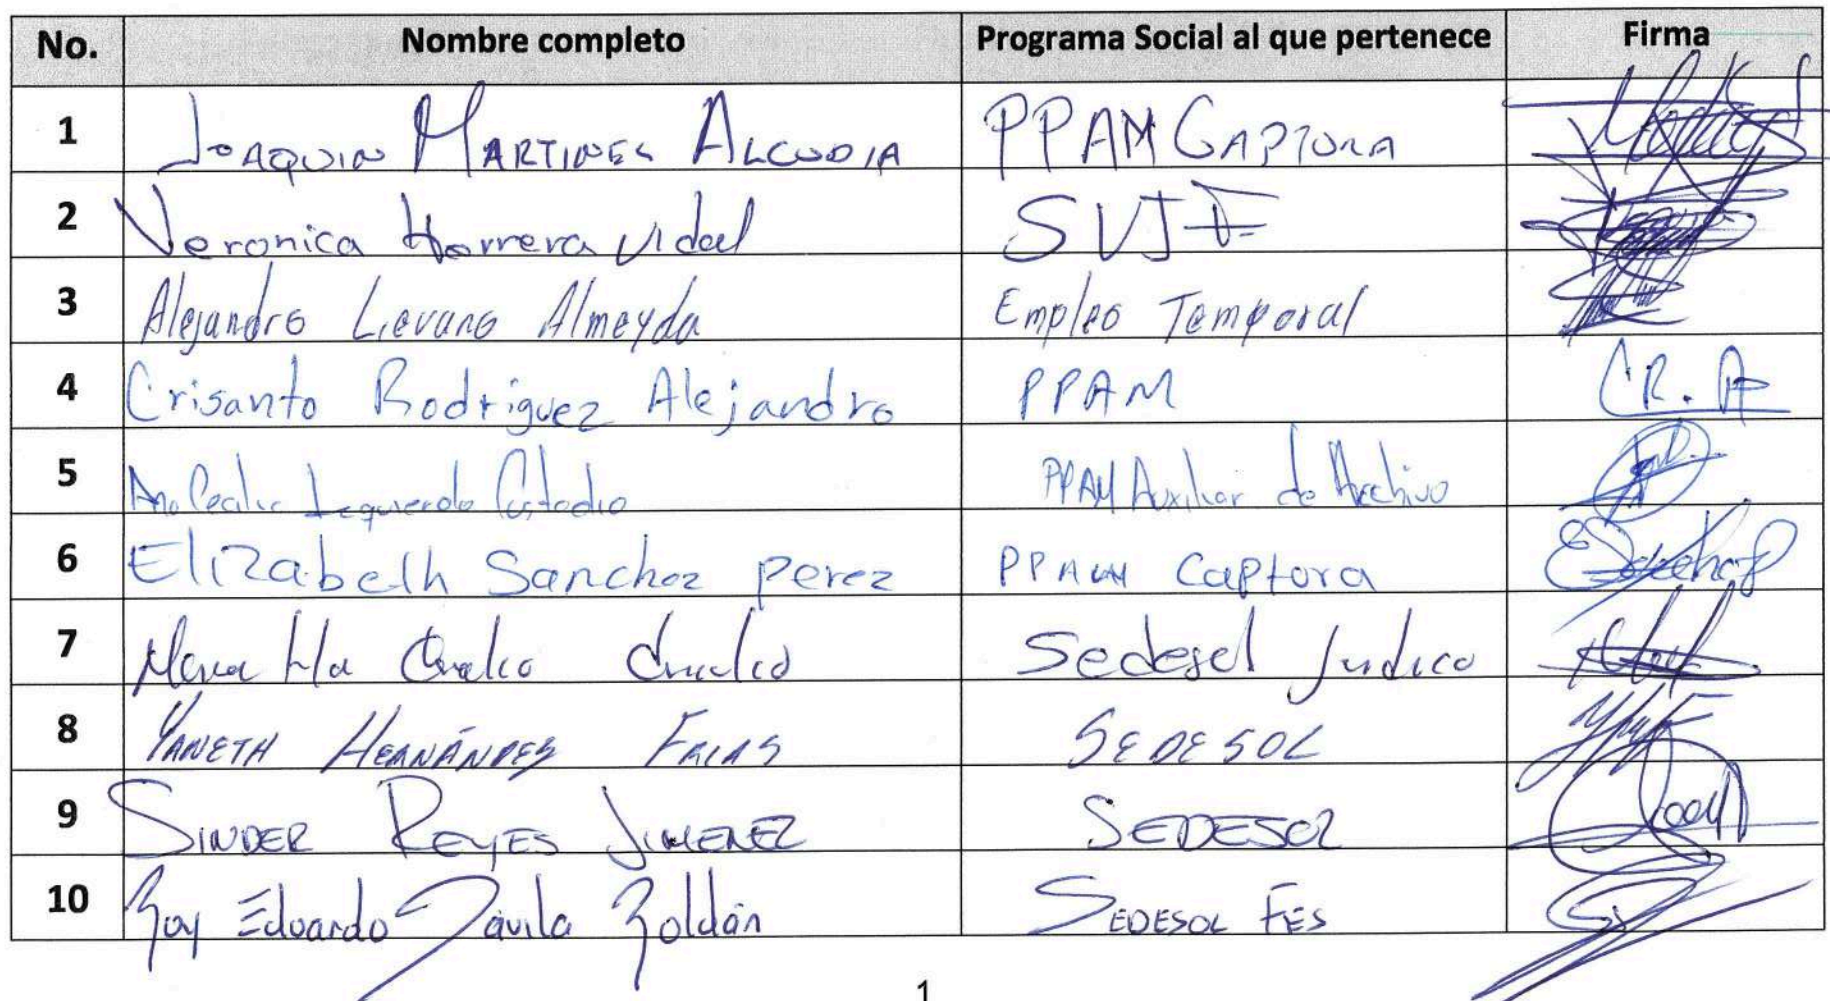 No. Nombre completo Programa Social al que pertenece Firma
1 JOAQUIN MARTINES ALCUDIA PPAM CAPTURA
2 Veronica Herrera Vidal SVJF
3 Alejandro Lievano Almeyda Empleo Temporal
4 Crisanto Rodriguez Alejandro PPAM CR. A
5 Ana Cecilia Izquierdo Custodio PPAM Auxiliar de Archivo
6 Elizabeth Sanchez perez PPAM Captora
7 Sedesol
8 YANETH HERNÁNDES FRIAS SEDESOL
9 SINDER REYES JIMENEZ SEDESOL
10 Roy Eduardo Dávila Roldán SEDESOL FES
1